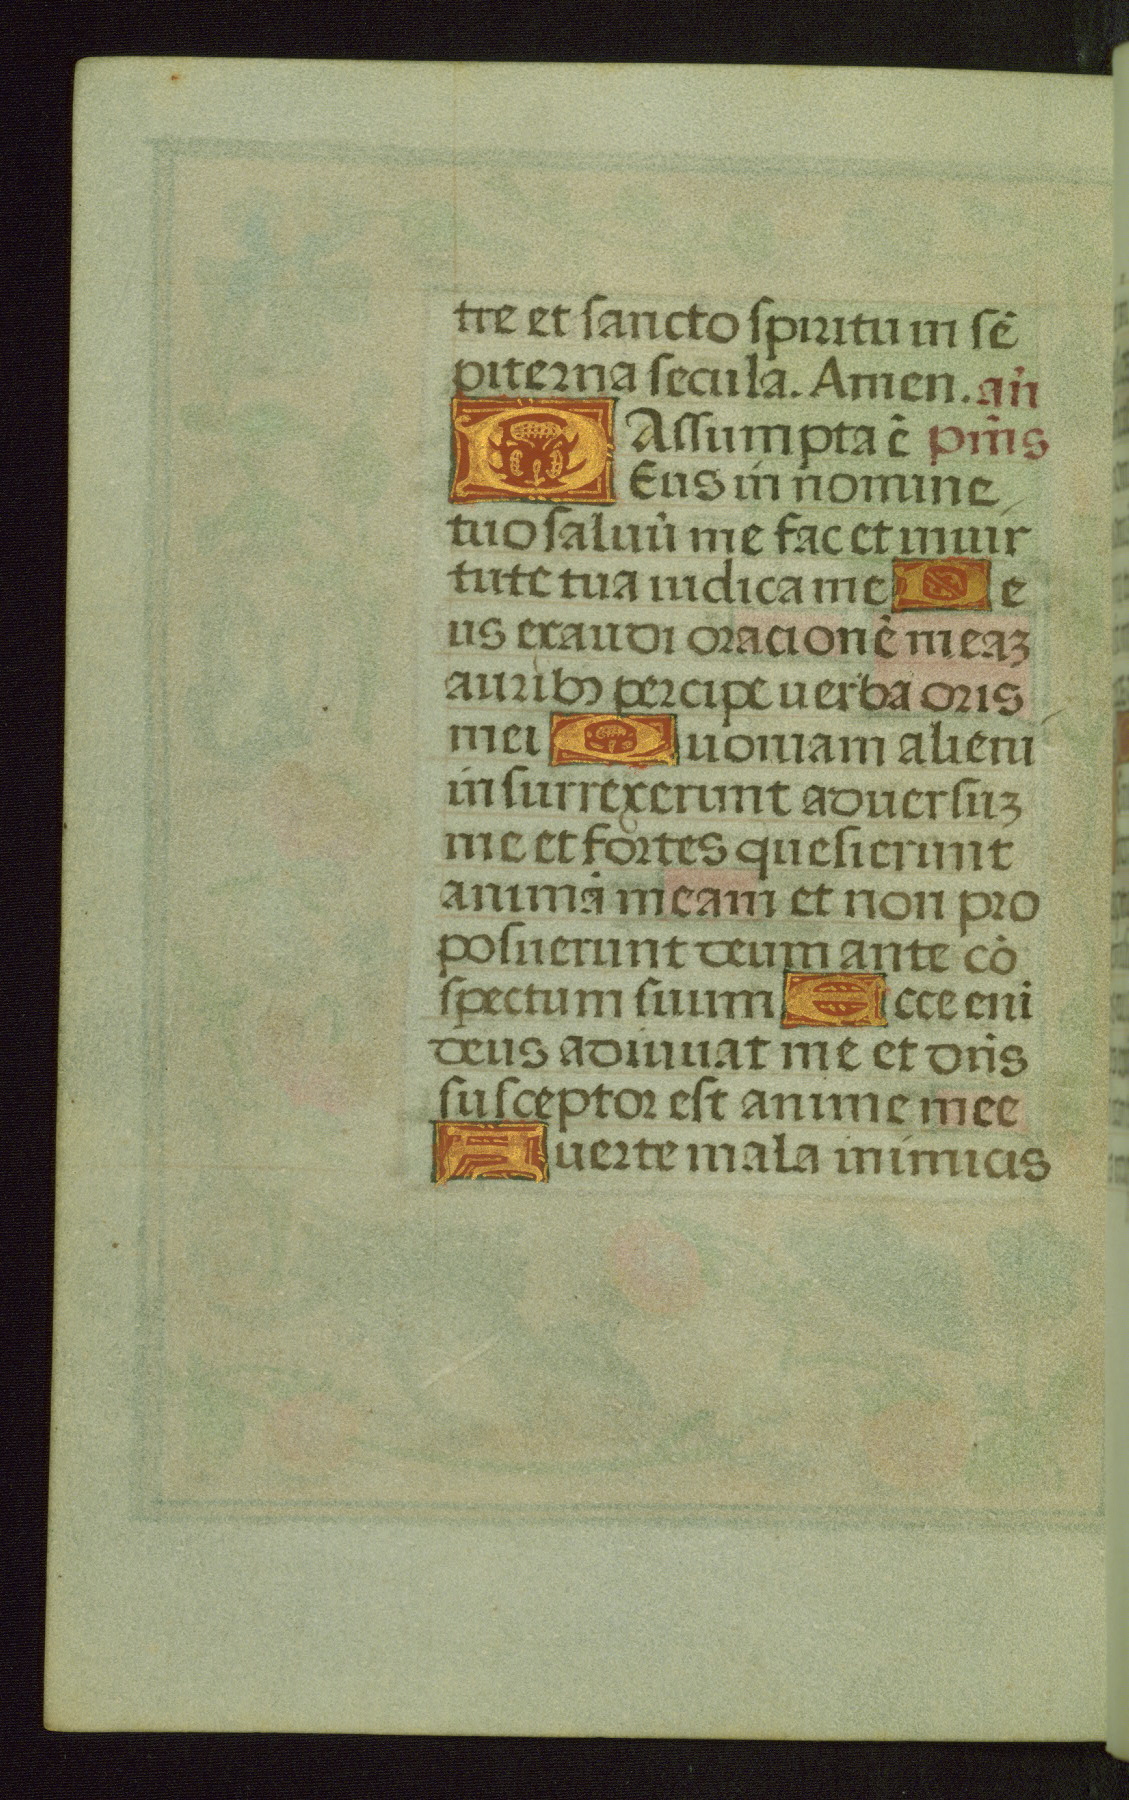 tre et sancto spiritu in sē
piterna secula. Amen. añ
Assumpta ē pm̄s
DEus in nomine
tuo saluū me fac et in uir
tute tua iudica me De
us exaudi oracionē meaꝫ
auribꝰ percipe uerba oris
mei Quoniam alieni
insurrexerunt aduersuꝫ
me et fortes quesierunt
animā meam et non pro
posuerunt deum ante cō
spectum suum Ecce eni
deus adiuuat me et dn̄s
susceptor est anime mee
Auerte mala inimicis